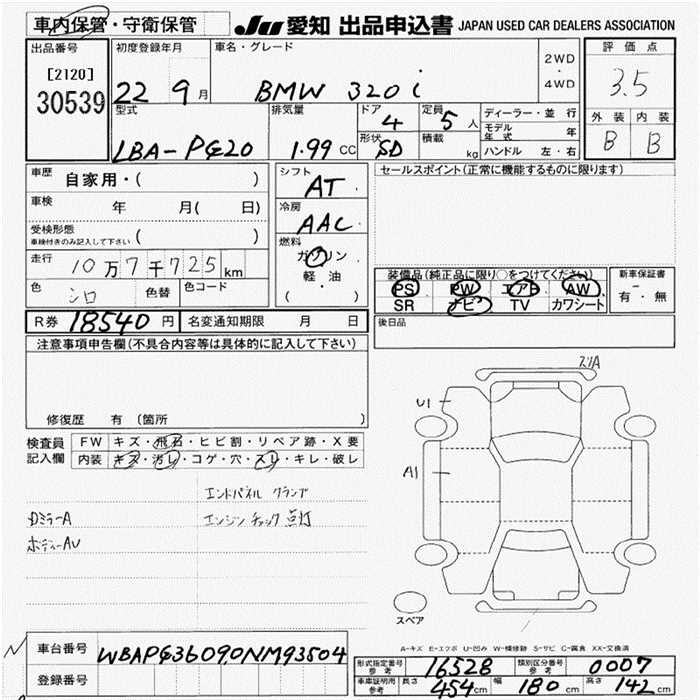 車内保管・守衛保管
JU 愛知 出品申込書 JAPAN USED CAR DEALERS ASSOCIATION
出品番号
[2120]
30539
初度登録年月
22 9 月
車名・グレード
BMW 320i
2WD
・
4WD
評価点
3.5
外装 内装
B B
型式
LBA-PG20
排気量
1.99 CC
ドア
4
定員
5 人
形状
SD
積載
kg
ディーラー・並行
モデル年式 年
ハンドル 左・右
車歴
自家用・( )
車検 年 月( 日)
受検形態
車検付きのみ記入して下さい ( )
走行 10万7千725km
色 シロ 色替 色コード
シフト
AT
冷房
AAC
燃料
ガソリン
・
軽・油
( )
セールスポイント(正常に機能するものに限ります)
装備品(純正品に限り○をつけてください)
PS PW エアB AW
SR ナビ TV カワシート
新車保証書
有・無
R券 18540 円 名変通知期限 月 日
後日品
注意事項申告欄(不具合内容等は具体的に記入して下さい)
修復歴 有 〔箇所 〕
検査員
記入欄
FW キズ・飛石・ヒビ割・リペア跡・X要
内装 キズ・汚レ・コゲ・穴・スレ・キレ・破レ
エンドパネル クランプ
DミラーA エンジンチェック 点灯
ボディーAU
スリA
U1
A1
スペア
A-キズ E-エクボ U-凹み W-補修跡 S-サビ C-腐食 XX-交換済
車台番号 WBAPG36090NM93504
登録番号
形式指定番号 参考 16528 類別区分番号 参考 0007
車庫証明用 参考 長さ 454cm 幅 180cm 高さ 142cm